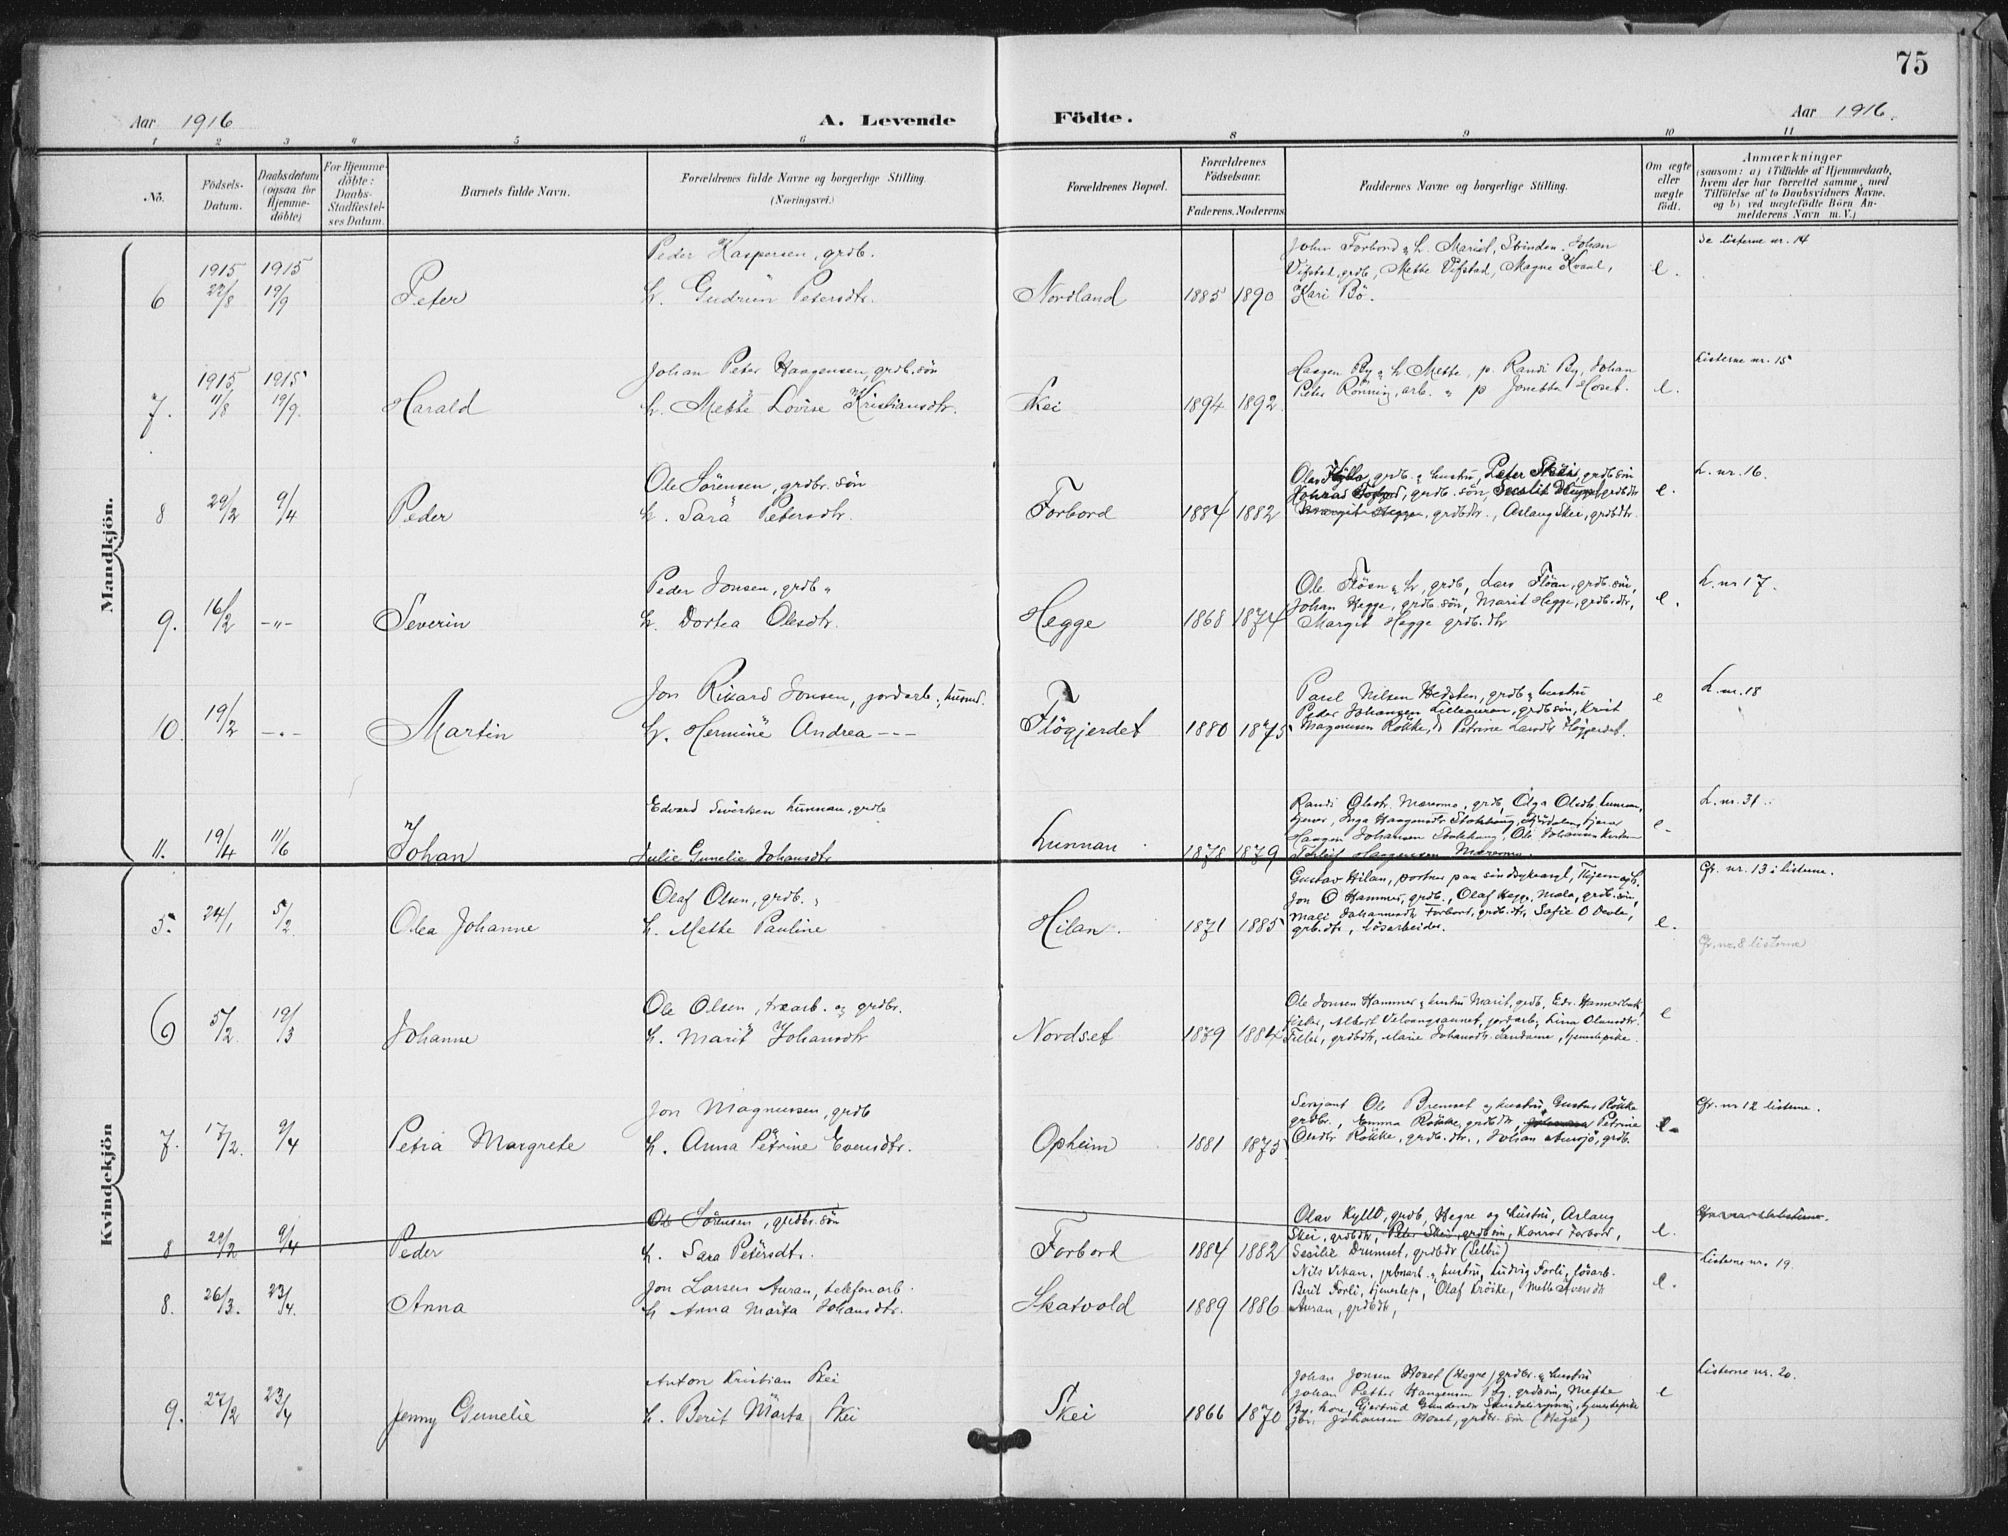 75
Aar 1916
A. Levende
Födte.
Aar 1916.
1 2 3 4 5 6 8 9 10 11
No.
Födsels-
Datum.
Daabsdatum
(ogsaa for
Hjemme-
döbte)
For Hjemme-
döbte:
Daabs-
Stadfæstel-
ses Datum.
Barnets fulde Navn.
Forældrenes fulde Navne og borgerlige Stilling.
(Næringsvei.)
Forældrenes Bopæl.
Forældrenes
Födselsaar.
Faderens. Moderens
Faddernes Navne og borgerlige Stilling.
Om ægte
eller
uægte
födt.
Anmærkninger
(saasom: a) i Tilfælde af Hjemmedaab,
hvem der har forrettet samme, med
Tilföielse af to Daabsvidners Navne.
og b) ved uægtefödte Börn An-
melderens Navn m. V.)
Mandkjön.
6
1915
22/8
1915
19/9
Peter
Peder Kaspersen, grdb.
h. Gudrun Petersdtr.
Nordland
1885 1890
John Forbord & h. Marist, Johan
Vifstad, grdb, Mette Vifstad, Magne Kvaal,
Kari Bö.
e.
Se listerne nr. 14
7.
1915
11/8
1915
19/9.
Harald
Johan Peter Haagensen, grdb. sön
h. Mette Lovise Kristiansdtr.
Skei
1894 1892
Haagen By & h Mette, p. Randi By, Johan
Peter Rönning, arb. & p Jonetta Hoset.
e.
Listerne nr. 15
8
29/2
9/4
Peder
Ole Sörensen, grdbr. sön
h. Sara Petersdtr.
Forbord
1884 1882
Olav Kyllo, grdb. & hustru, Peter Skei, grdb sön
grdb. sön, grdb dtr
Margit Hegge, grdb dtr., Aslaug Skei, grdb dtr.
e.
L. nr. 16
9.
16/2
-"-
Severin
Peder Jonsen, grdb &
h. Dortea Olesdtr.
Hegge
1868 1874
Ole Flöan & h, grdb, Lars Flöan, grdb. sön,
Johan Hegge, grdb. sön, Marit Hegge, grdb. dtr,
Margit Hegge grdb. dtr
e.
L. nr 17.
10.
19/2
-"-
Martin
Jon Rikard Jonsen, jordarb., husmd.
h. Hermine Andrea ---
Flögjerdet
1880 1875
Paul Nilsen Hedsten, grdb & hustru
Peder Johansen Lilleauran, grdb sön, Krist
Magnusen Rökke, & Petrine Larsdtr Flögjerdet.
e
L. nr. 18
11.
19/4
11/6
Johan
Edvard Sivertsen Lunnan, grdb
Julie Gunelie Johansdtr
Lunnan
1878 1879
Randi Olesdtr. Mæremo, grdb, Olga Olsdtr. Lunnan,
tjener, Inga Haagensdtr. tjener
Haagen Johansen Ole Johansen
Haagensen Mæremo.
e-
L. nr. 31.
Kvindekjön
5.
24/1
5/2
Olea Johanne
Olaf Olsen, grdb. &
h. Mette Pauline
Hilan
1871 1885
Gustav Hilan, portner paa sindsykeasyl,
Jon O Hammer, grdb., Olaf Hegge, grdb. sön,
Mali Johannesdtr Forbord, grdb. dtr, Sofie O
grb. dtr, lösarbeider.
e.
Cfr. nr. 13 i listerne.
Cfr. nr. 8 listerne
6
5/2
19/3
Johanne
Ole Olsen, træarb. og grdbr.
h. Marit Johansdtr
Nordset
1879 1884
Ole Jonsen Hammer & hustru Marit, grdb,
fisker, Albert jordarb, Lina Olausdtr.
grdbdtr, Marie Johansdtr. tjenestepike.
e
7.
17/2.
9/4
Petra Margrete
Jon Magnussen, grdb
h. Anna Petrine Evensdtr.
Opheim
1881 1875
Sersjant Ole Bremset og hustru, Gustav Rökke
grdbr., Emma Rökke, grdb dtr, Petrine
Olesdtr Rökke, grdb. dtr., Johan grdb.
e-
Cfr. nr 12 listerne.
8
29/2
9/4
Peder
Ole Sörensen, grdbr. sön
h. Sara Petersdtr.
Forbord
1884 1882
Olav Kyllo, grdb, Hegre og hustru, Aslaug
Skei, grdbdtr, Peter Skei, grdb sön, Konrad Forbord,
Sesilie Drumset, grdbdtr (Selbu)
e.
8.
26/3.
23/4.
Anna
Jon Larsen Auran, telefonarb.
h Anna Marta Johansdtr.
Skatvold
1889 1886
Nils Vikan, jrbnarb. & hustru, Ludvig Forli, lösarb.
Berit Forli, tjenestep, Olaf Kröike, Mette
Auran, grdbdtr,
e.
Listerne nr. 19.
9.
27/2
23/4
Jenny Gunelie
Anton Kristian Skei
h. Berit Marta Skei
Skei
1866 1870
Johan Jonsen Hoset (Hegre) grdbr. & hustru
Johan Petter Haagensen By, grdbsön, Mette
By, kone, Gjertrud tjenestepike
Johansen Hoset, grdbr. sön (Hegre)
e
Listerne nr. 20.